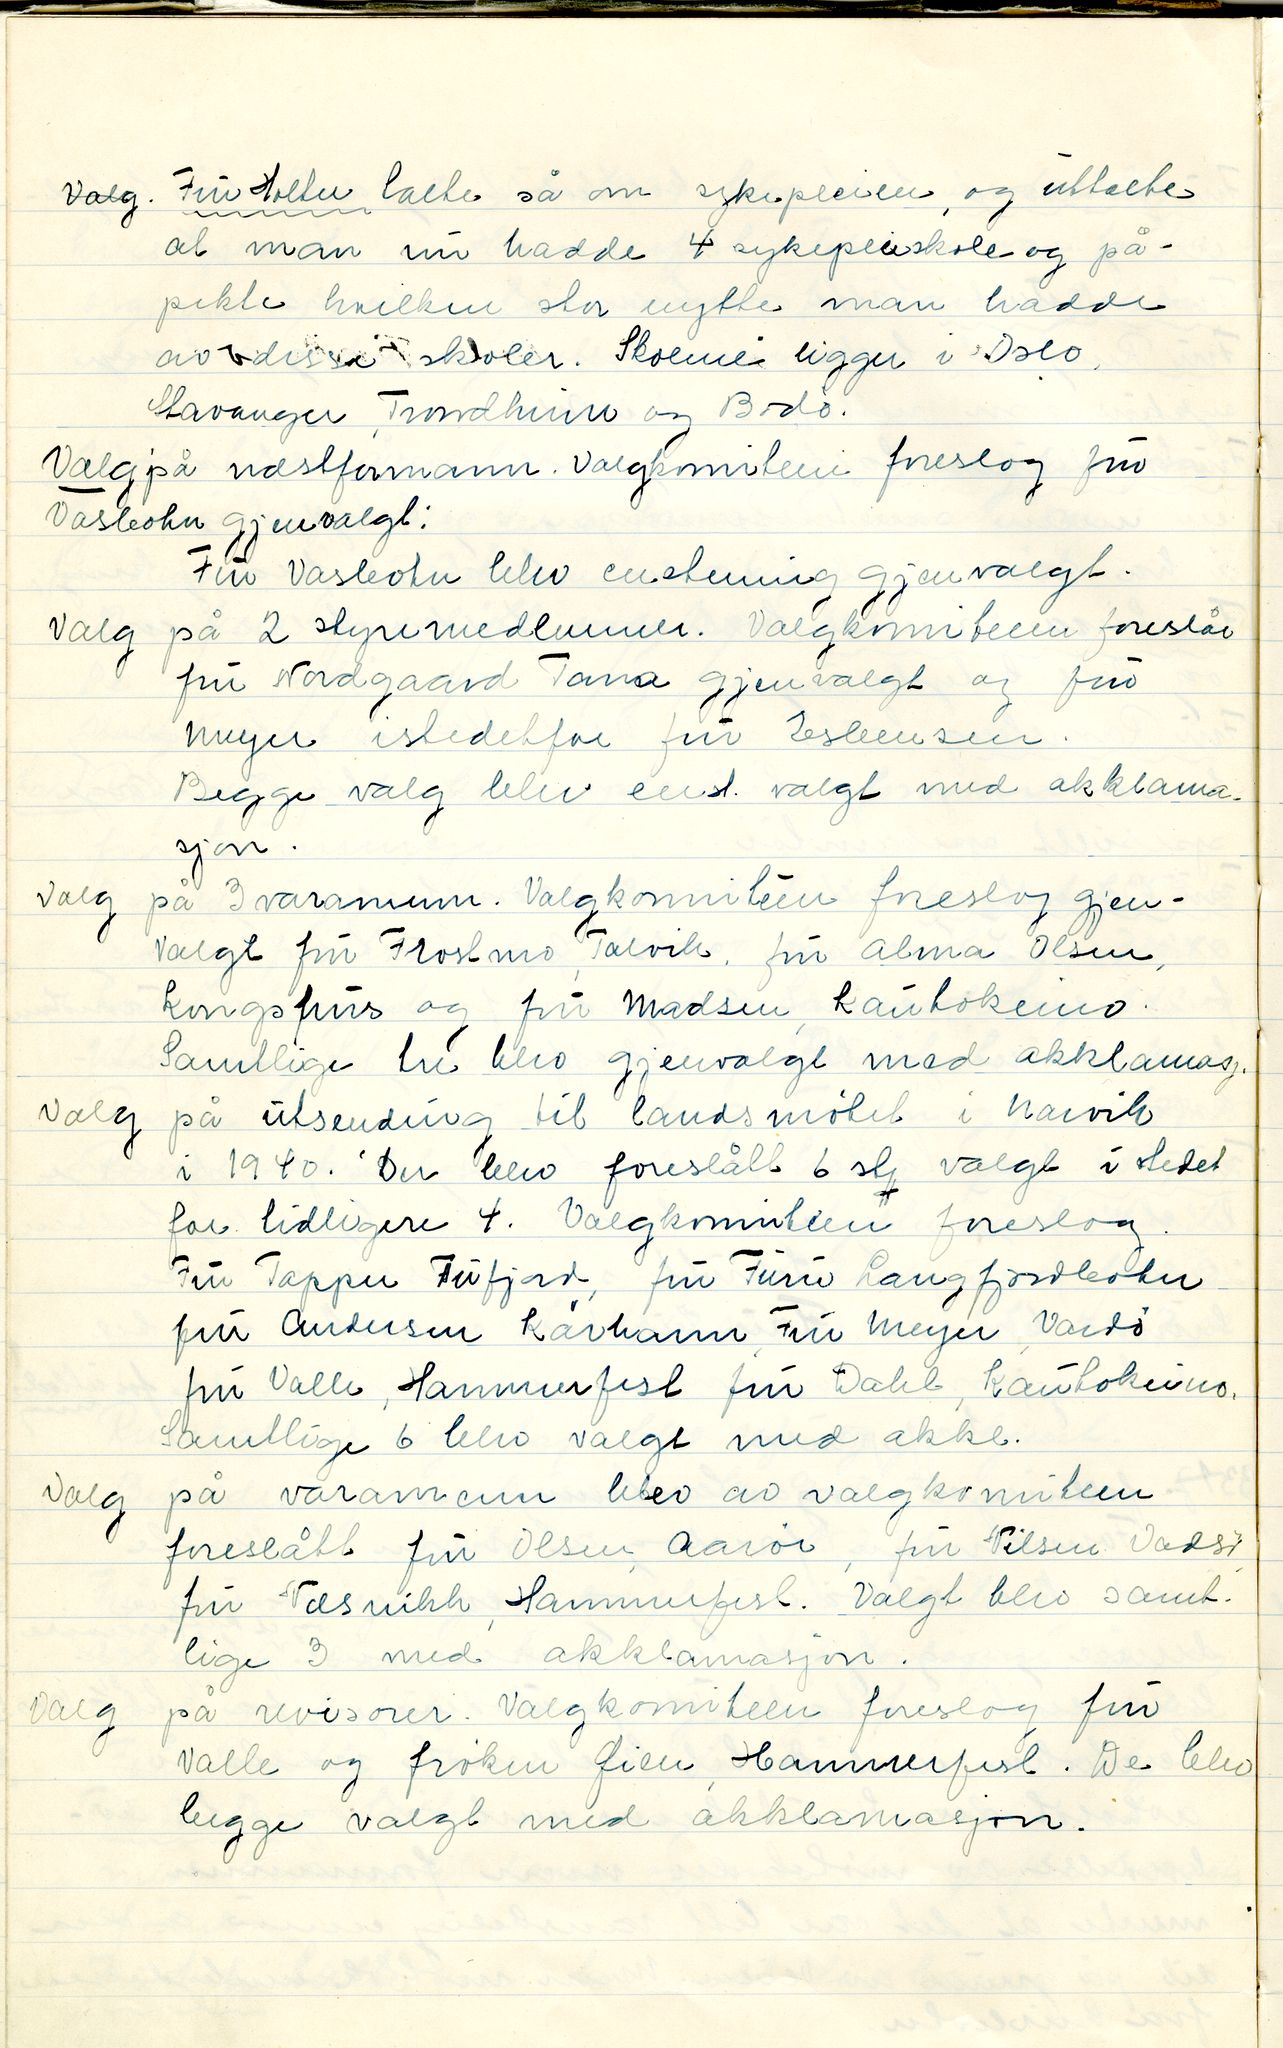 Valg. Frú Holter talte så om sykepleien, og úttalte
at man nú hadde 4 sykepleieskole og på-
pekte hvilken stor nytte man hadde
av disse skoler. Skolene ligger i Oslo,
Stavanger, Trondheim og Bodö.
Valg på næstformann. Valgkomiteen foreslog frú
Vasbotn gjenvalgt:
Frú Vasbotn blev enstemmig gjenvalgt.
Valg på 2 styremedlemmer. Valgkomiteen foreslår
frú Nordgaard Tana gjenvalgt og frú
Meyer istedetfor frú Esbensen.
Begge valg blev enst. valgt med akklama-
sjon.
Valg på 3 varamenn. Valgkomiteen foreslog gjen-
valgt frú Frostmo, Talvik, frú Alma Olsen,
Kongsfjord og frú Madsen, Kaútokeino.
Samtlige tre blev gjenvalgt med akklamasj.
Valg på útsending til landsmötet i Narvik
i 1940. Der blev foreslått 6 stk valgt i stedet
for tidligere 4. Valgkomiteen foreslog.
Frú Tapper Rúfjord, frú Fúrú Langfjordbotn
frú Andersen Kårhamn, Frú Meyer, Vardö
frú Valle, Hammerfest frú Dahl, Kaútokeino.
Samtlige 6 blev valgt med akkl.
Valg på varamenn blev av valgkomiteen
foreslått frú Olsen, Aaröi, frú Nilsen Vadsö,
frú Næsvikk, Hammerfest. Valgt blev samt-
lige 3 med akklamasjon.
Valg på revisorer. Valgkomiteen foreslog frú
Valle og fröken Lien, Hammerfest. De blev
begge valgt med akklamasjon.